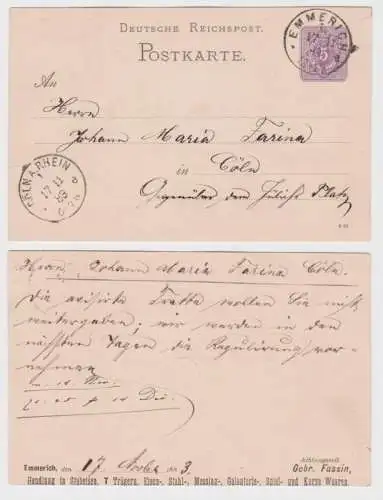 DEUTSCHE REICHSPOST.
POSTKARTE.
EMMERICH
An
Herrn
Johann Maria Farina
in Cöln
Gegenüber dem Jülichs Platz
CÖLN RHEIN
17 11
Herrn Johann Maria Farina Cöln.
Die avisirte Tratte wollen Sie nicht
weitergeben; wir werden in den
nächsten Tagen die Regulirung vor-
nehmen
Achtungsvoll
Emmerich, den 17 188 3.
Gebr. Fassin,
Handlung in Stabeisen, T Trägern, Eisen-, Stahl-, Messing-, Galanterie-, Spiel- und Kurze Waaren.